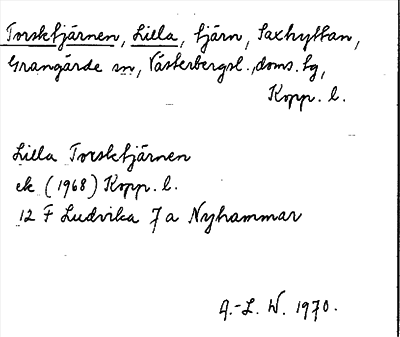 Torsktjärnen, Lilla, tjärn, Saxhyttan,
Grangärde sn, Västerbergsl. doms. tg,
Kopp. l.
Lilla Torsktjärnen
ek (1968) Kopp. l.
12 F Ludvika 7 a Nyhammar
A.-L. W. 1970.